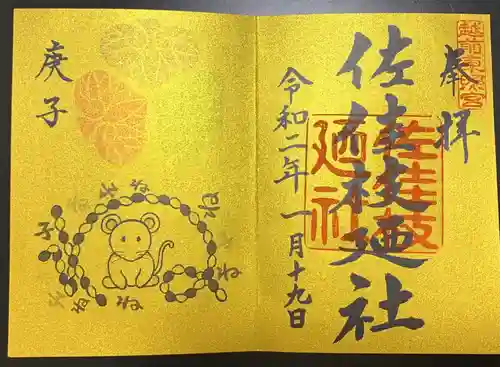 越前東照宮
奉拝
佐佳枝廼社
佐佳枝
廼社
令和二年一月十九日
庚子
ね
ね
子
ね
ね
ね